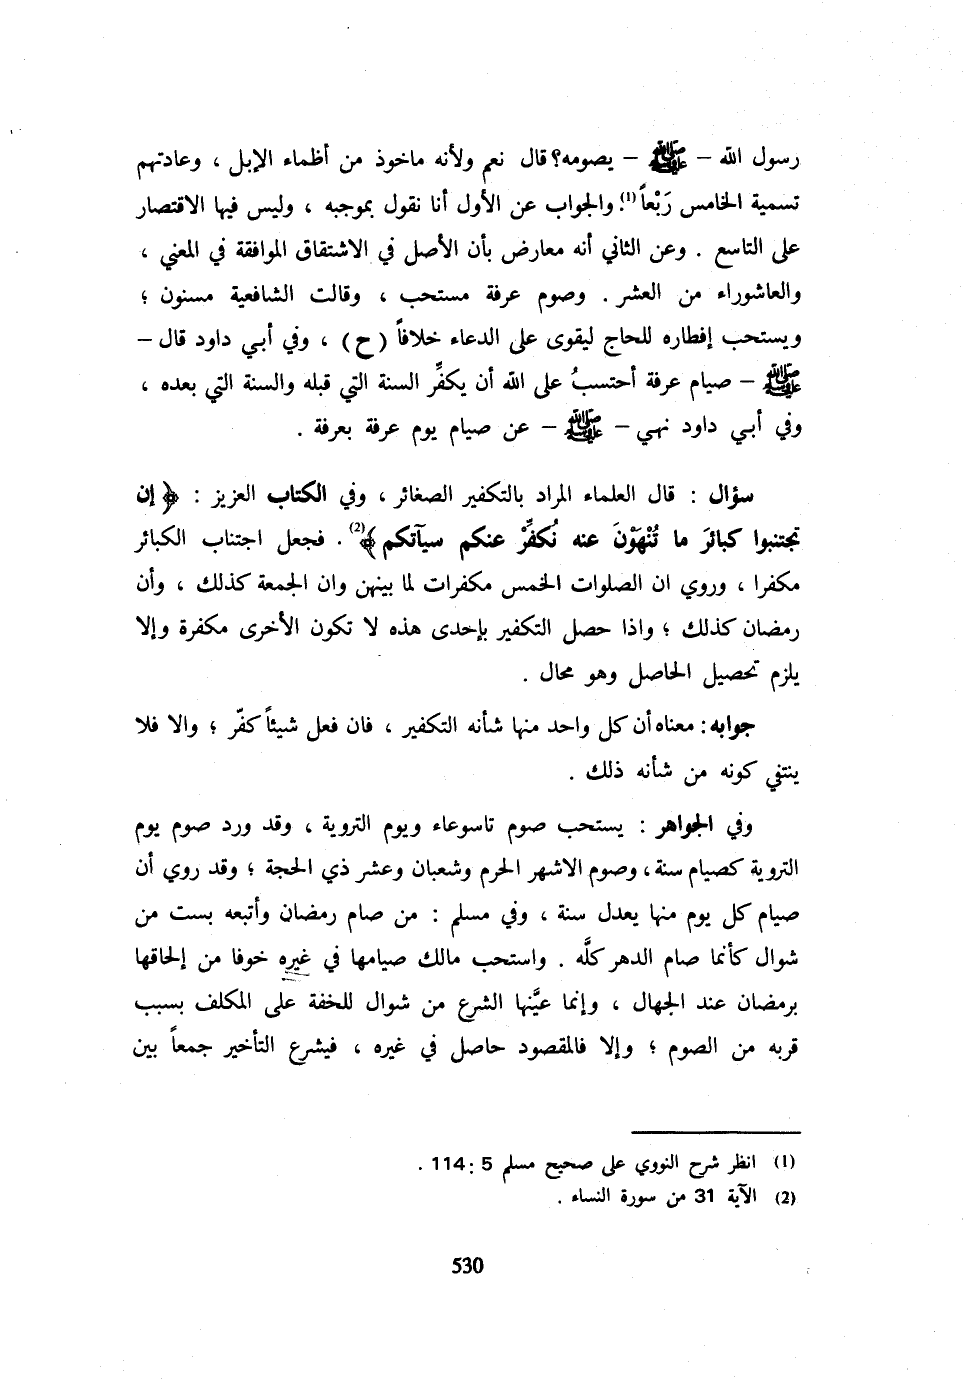 رسول الله – ﷺ – يصومه؟ قال نعم ولأنه ماخوذ من أظماء الإبل ، وعادتهم
تسمية الخامس رَبْعاً(1)! والجواب عن الأول أنا نقول بموجبه ، وليس فيها الاقتصار
على التاسع . وعن الثاني أنه معارض بأن الأصل في الاشتقاق الموافقة في المعني ،
والعاشوراء من العشر . وصوم عرفة مستحب ، وقالت الشافعية مسنون ؛
ويستحب إفطاره للحاج ليقوى على الدعاء خلافاً (ح) ، وفي أبي داود قال –
ﷺ – صيام عرفة أحتسبُ على الله أن يكفِّر السنة التي قبله والسنة التي بعده ،
وفي أبي داود نهي – ﷺ – عن صيام يوم عرفة بعرفة .
سؤال : قال العلماء المراد بالتكفير الصغائر ، وفي الكتاب العزيز : ﴿إن
تجتنبوا كبائرَ ما تُنْهَوْنَ عنه نُكفِّرْ عنكم سيآتكم﴾(2) . فجعل اجتناب الكبائر
مكفرا ، وروي ان الصلوات الخمس مكفرات لما بينهن وان الجمعة كذلك ، وأن
رمضان كذلك ؛ واذا حصل التكفير بإحدى هذه لا تكون الأخرى مكفرة وإلا
يلزم تحصيل الحاصل وهو محال .
جوابه : معناه أن كل واحد منها شأنه التكفير ، فان فعل شيئاً كفّر ؛ والا فلا
ينتفي كونه من شأنه ذلك .
وفي الجواهر : يستحب صوم تاسوعاء ويوم التروية ، وقد ورد صوم يوم
التروية كصيام سنة ، وصوم الاشهر الحرم وشعبان وعشر ذي الحجة ؛ وقد روي أن
صيام كل يوم منها يعدل سنة ، وفي مسلم : من صام رمضان وأتبعه بست من
شوال كأنما صام الدهر كلَّه . واستحب مالك صيامها في غيره خوفا من إلحاقها
برمضان عند الجهال ، وإنما عيَّنها الشرع من شوال للخفة على المكلف بسبب
قربه من الصوم ؛ وإلا فالمقصود حاصل في غيره ، فيشرع التأخير جمعاً بين
(1) انظر شرح النووي على صحيح مسلم 5 : 114 .
(2) الآية 31 من سورة النساء .
530